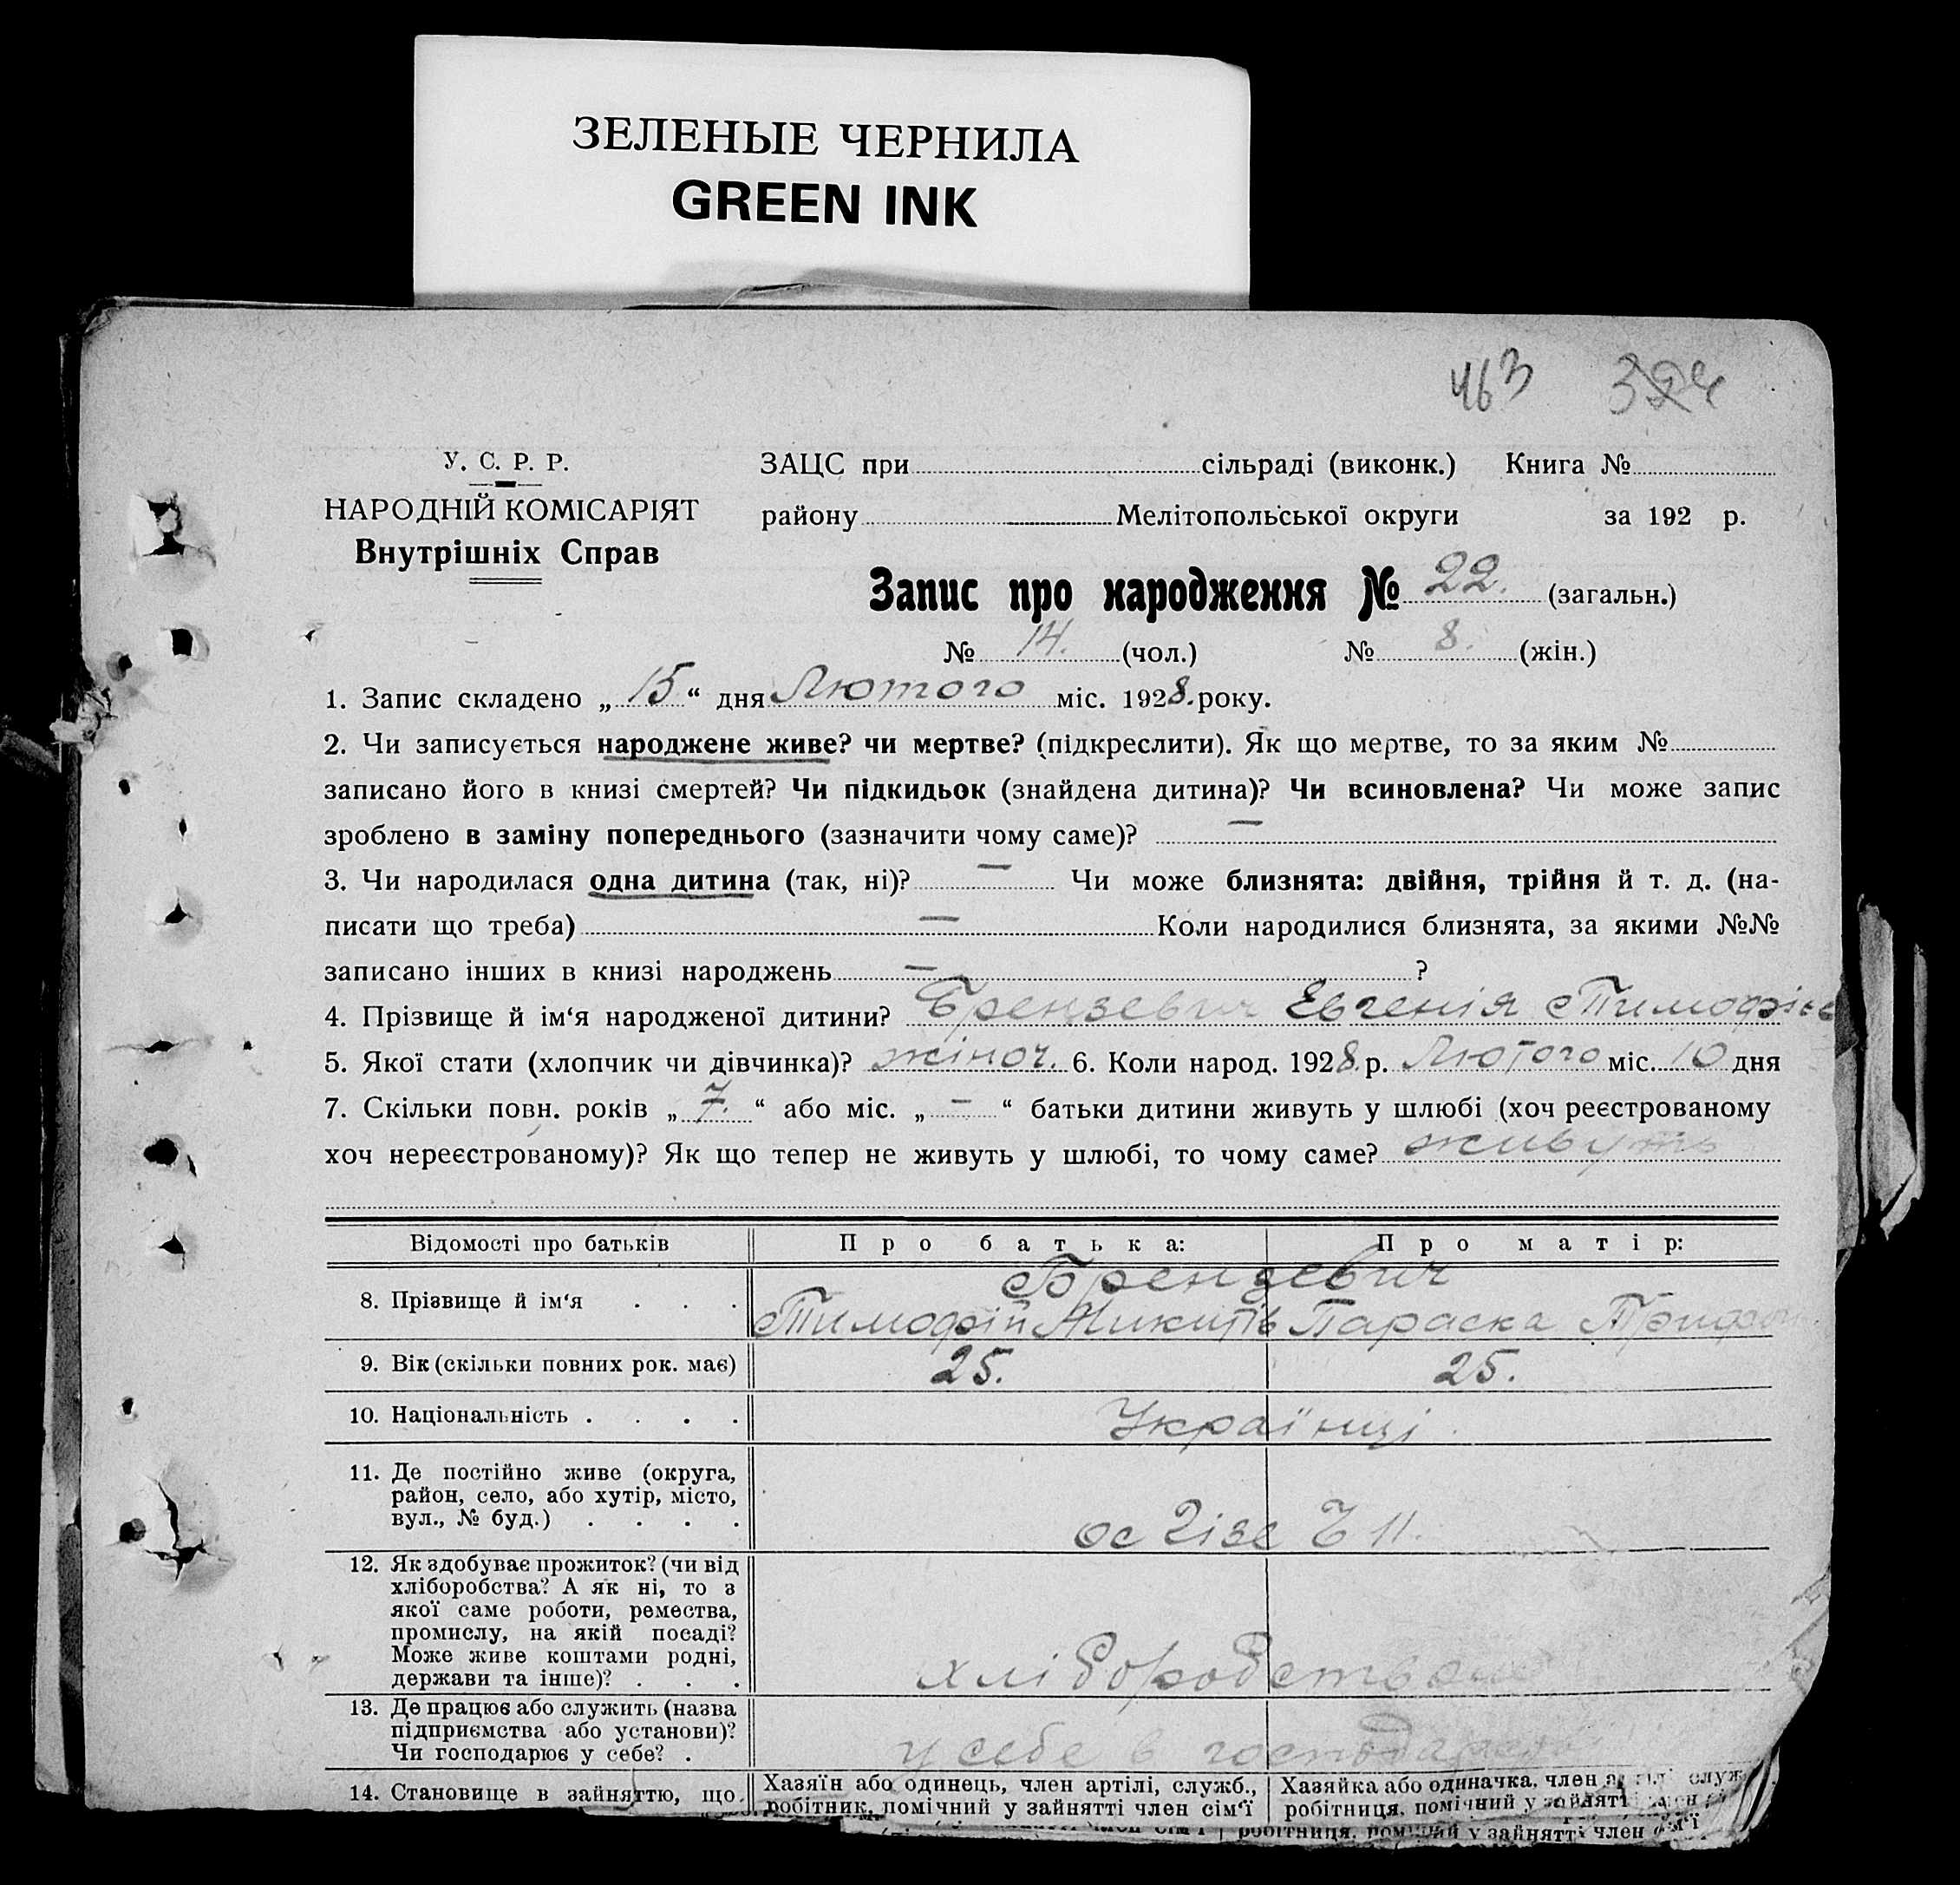 ЗЕЛЕНЫЕ ЧЕРНИЛА
GREEN INK
463 324
У. С. Р. Р.
НАРОДНІЙ КОМІСАРІЯТ
Внутрішніх Справ
ЗАЦС при сільраді (виконк.) Книга №
району Мелітопольської округи за 192 р.
Запис про народження № 22. (загальн.)
№ 14. (чол.) № 8. (жін.)
1. Запис складено „ 15 “ дня Лютого міс. 1928. року.
2. Чи записується народжене живе? чи мертве? (підкреслити). Як що мертве, то за яким №
записано його в книзі смертей? Чи підкидьок (знайдена дитина)? Чи всиновлена? Чи може запис
зроблено в заміну попереднього (зазначити чому саме)? —
3. Чи народилася одна дитина (так, ні)? — Чи може близнята: двійня, трійня й т. д. (на-
писати що треба) — Коли народилися близнята, за якими №№
записано інших в книзі народжень — ?
4. Прізвище й ім‘я народженої дитини? Брензевич Евгенія Тимофіїв
5. Якої стати (хлопчик чи дівчинка)? жіноч. 6. Коли народ. 1928. р. Лютого міс. 10 дня
7. Скільки повн. років „ 7. “ або міс. „ — “ батьки дитини живуть у шлюбі (хоч реєстрованому
хоч нереєстрованому)? Як що тепер не живуть у шлюбі, то чому саме? живуть
Відомості про батьків Про батька: Про матір:
Брензевич
8. Прізвище й ім‘я . . . Тимофій Микитів Параска Трифон
9. Вік (скільки повних рок. має) 25. 25.
10. Національність . . . . Українці
11. Де постійно живе (округа,
район, село, або хутір, місто,
вул., № буд.) . . . .
12. Як здобуває прожиток? (чи від
хліборобства? А як ні, то з
якої саме роботи, ремества,
промислу, на якій посаді?
Може живе коштами родні,
держави та інше)? . . . хліборобством
13. Де працює або служить (назва
підприємства або установи)?
Чи господарює у себе? . у себе в господарстві
14. Становище в зайняттю, що Хазяїн або одинець, член артілі, служб., Хазяйка або одиначка, член артілі служ
робітник, помічний у зайнятті член сім‘ї робітниця, помічний у зайнятті член
робітниця, помічний у зайнятті член сім‘ї